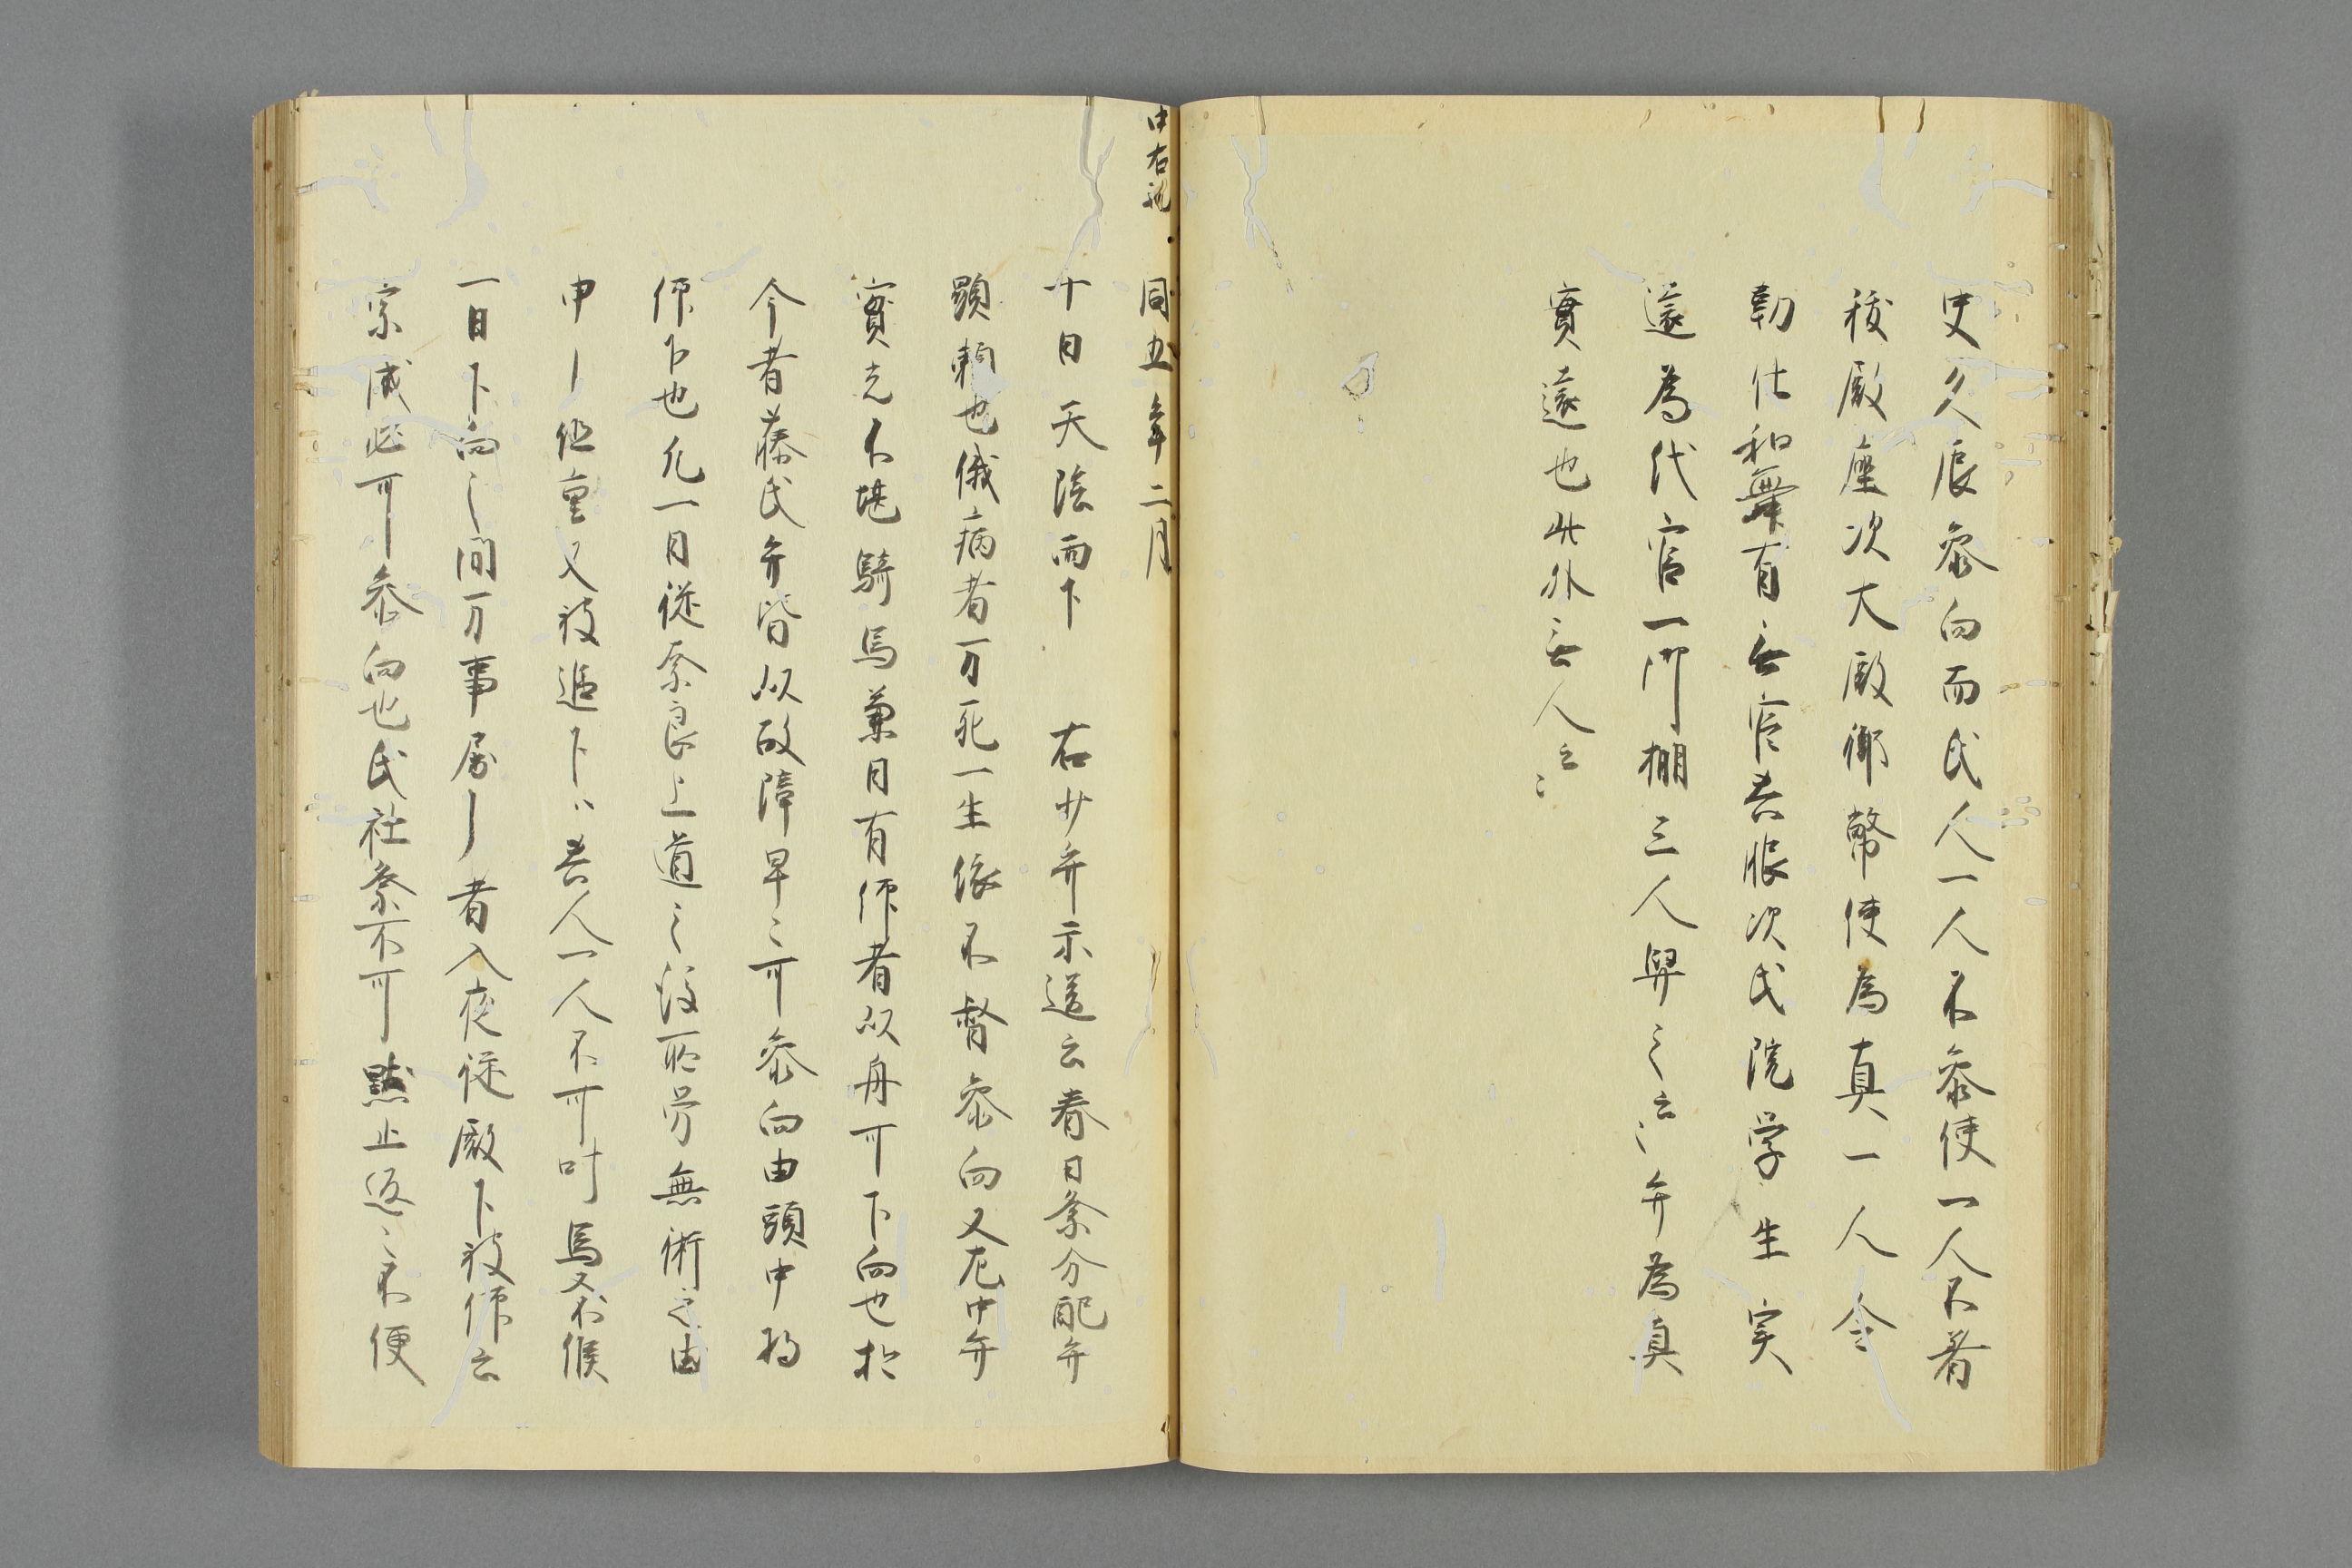 史久辰参向而氏人一人不参使一人不着
秡殿座次大殿御幣使為真一人令
勤仕和舞有無官着服次氏院学生実
遠為代官一門棚三人舁之云〻弁為真
實遠也此外無人云〻
中右記
同五年二月
十日天陰雨下 右少弁示送云春日祭分配弁
顕頼也俄病者万死一生依不督参向又左中弁
實光不堪騎馬兼日有仰者以舟可下向也於
今者藤氏弁皆以故障早〻可参向由頭中将
仰下也九一日従奈良上道之後所労無術之由
申了但重又被返下〻着人一人不可叶馬又不候
一日下向之間万事属了者入夜従殿下被仰云
宗成必可参向也氏社祭不可黙止返〻不便